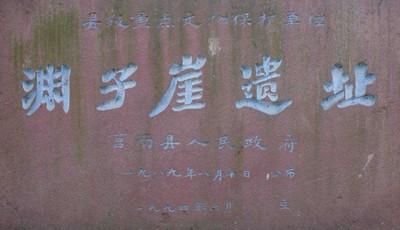 县级重点文物保护单位
渊子崖遗址
莒南县人民政府
一九八九年八月十日 公布
一九九四年 月 立